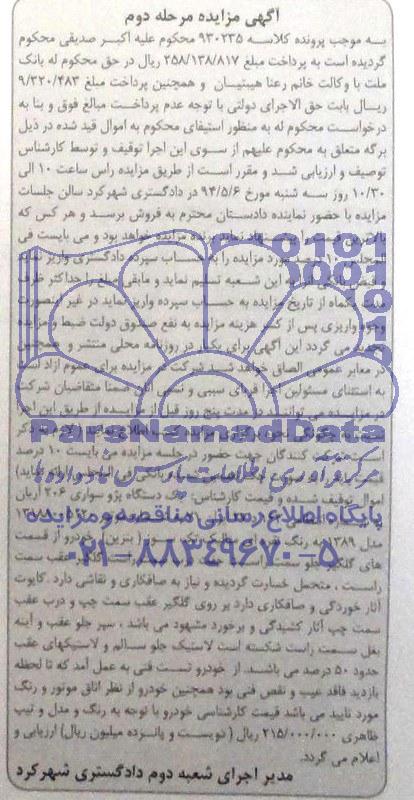 آگهی مزایده مرحله دوم
به موجب پرونده کلاسه ۹۳۰۲۳۵ محکوم علیه اکبر صدیقی محکوم
گردیده است به پرداخت مبلغ ۲۵۸/۱۳۸/۸۱۷ ریال در حق محکوم له بانک
ملت با وکالت خانم رعنا هیبتیان و همچنین پرداخت مبلغ ۹/۳۲۰/۴۸۳
ریال بابت حق الاجرای دولتی با توجه عدم پرداخت مبالغ فوق و بنا به
درخواست محکوم له به منظور استیفای محکوم به اموال قید شده در ذیل
برگه متعلق به محکوم علیهم از سوی این اجرا توقیف و توسط کارشناس
توصیف و ارزیابی شد و مقرر است از طریق مزایده راس ساعت ۱۰ الی
۱۰/۳۰ روز سه شنبه مورخ ۹۴/۵/۶ در دادگستری شهرکرد سالن جلسات
مزایده با حضور نماینده دادستان محترم به فروش برسد و هر کس که
بالاترین قیمت را پیشنهاد نماید برنده مزایده خواهد بود و می بایست فی
المجلس ۱۰ درصد مورد مزایده را به حساب سپرده دادگستری واریز نماید
و فیش بانکی را به این شعبه تسلیم نماید و مابقی مبلغ را حداکثر ظرف
مدت یکماه از تاریخ مزایده به حساب سپرده واریز نماید در غیر اینصورت
وجوه واریزی پس از کسر هزینه مزایده به نفع صندوق دولت ضبط و مزایده
تجدید می گردد این آگهی برای یکبار در روزنامه محلی منتشر و همچنین
در معابر عمومی الصاق خواهد شد شرکت در مزایده برای عموم آزاد است
به استثنای مسئولین اجرا اقربای سببی و نسبی آنان ضمنا متقاضیان شرکت
در مزایده می توانند در مدت پنج روز قبل از مزایده از طریق این اجرا
نسبت به چگونگی نحوه برگزاری مزایده کسب اطلاع نمایند (لازم به ذکر
است شرکت کنندگان جهت حضور در جلسه مزایده می بایست ۱۰ درصد
ParsNamadData
مرکز فرآوری اطلاعات پارس نماد داده ها
اموال توقیف شده و قیمت کارشناس: یک دستگاه پژو سواری ۲۰۶ آریان
پایگاه اطلاع رسانی مناقصه و مزایده
۰۲۱-۸۸۳۴۹۶۷۰-۵
مدل ۱۳۸۹ به رنگ
های گلگیر جلو سمت راست
راست ، متحمل خسارت گردیده و نیاز به صافکاری و نقاشی دارد . کاپوت
آثار خوردگی و صافکاری دارد بر روی گلگیر عقب سمت چپ و درب عقب
سمت چپ آثار کشیدگی و برخورد مشهود می باشد ، سپر جلو عقب و آینه
بغل سمت راست شکسته است لاستیک جلو سالم و لاستیکهای عقب
حدود ۵۰ درصد می باشند. از خودرو تست فنی به عمل آمد که تا لحظه
بازدید فاقد عیب و نقص فنی بود همچنین خودرو از نظر اتاق موتور و رنگ
مورد تایید می باشد قیمت کارشناسی خودرو با توجه به رنگ و مدل و تیپ
ظاهری ۲۱۵/۰۰۰/۰۰۰ ریال ( دویست و پانزده میلیون ریال) ارزیابی و
اعلام می گردد.
مدیر اجرای شعبه دوم دادگستری شهرکرد